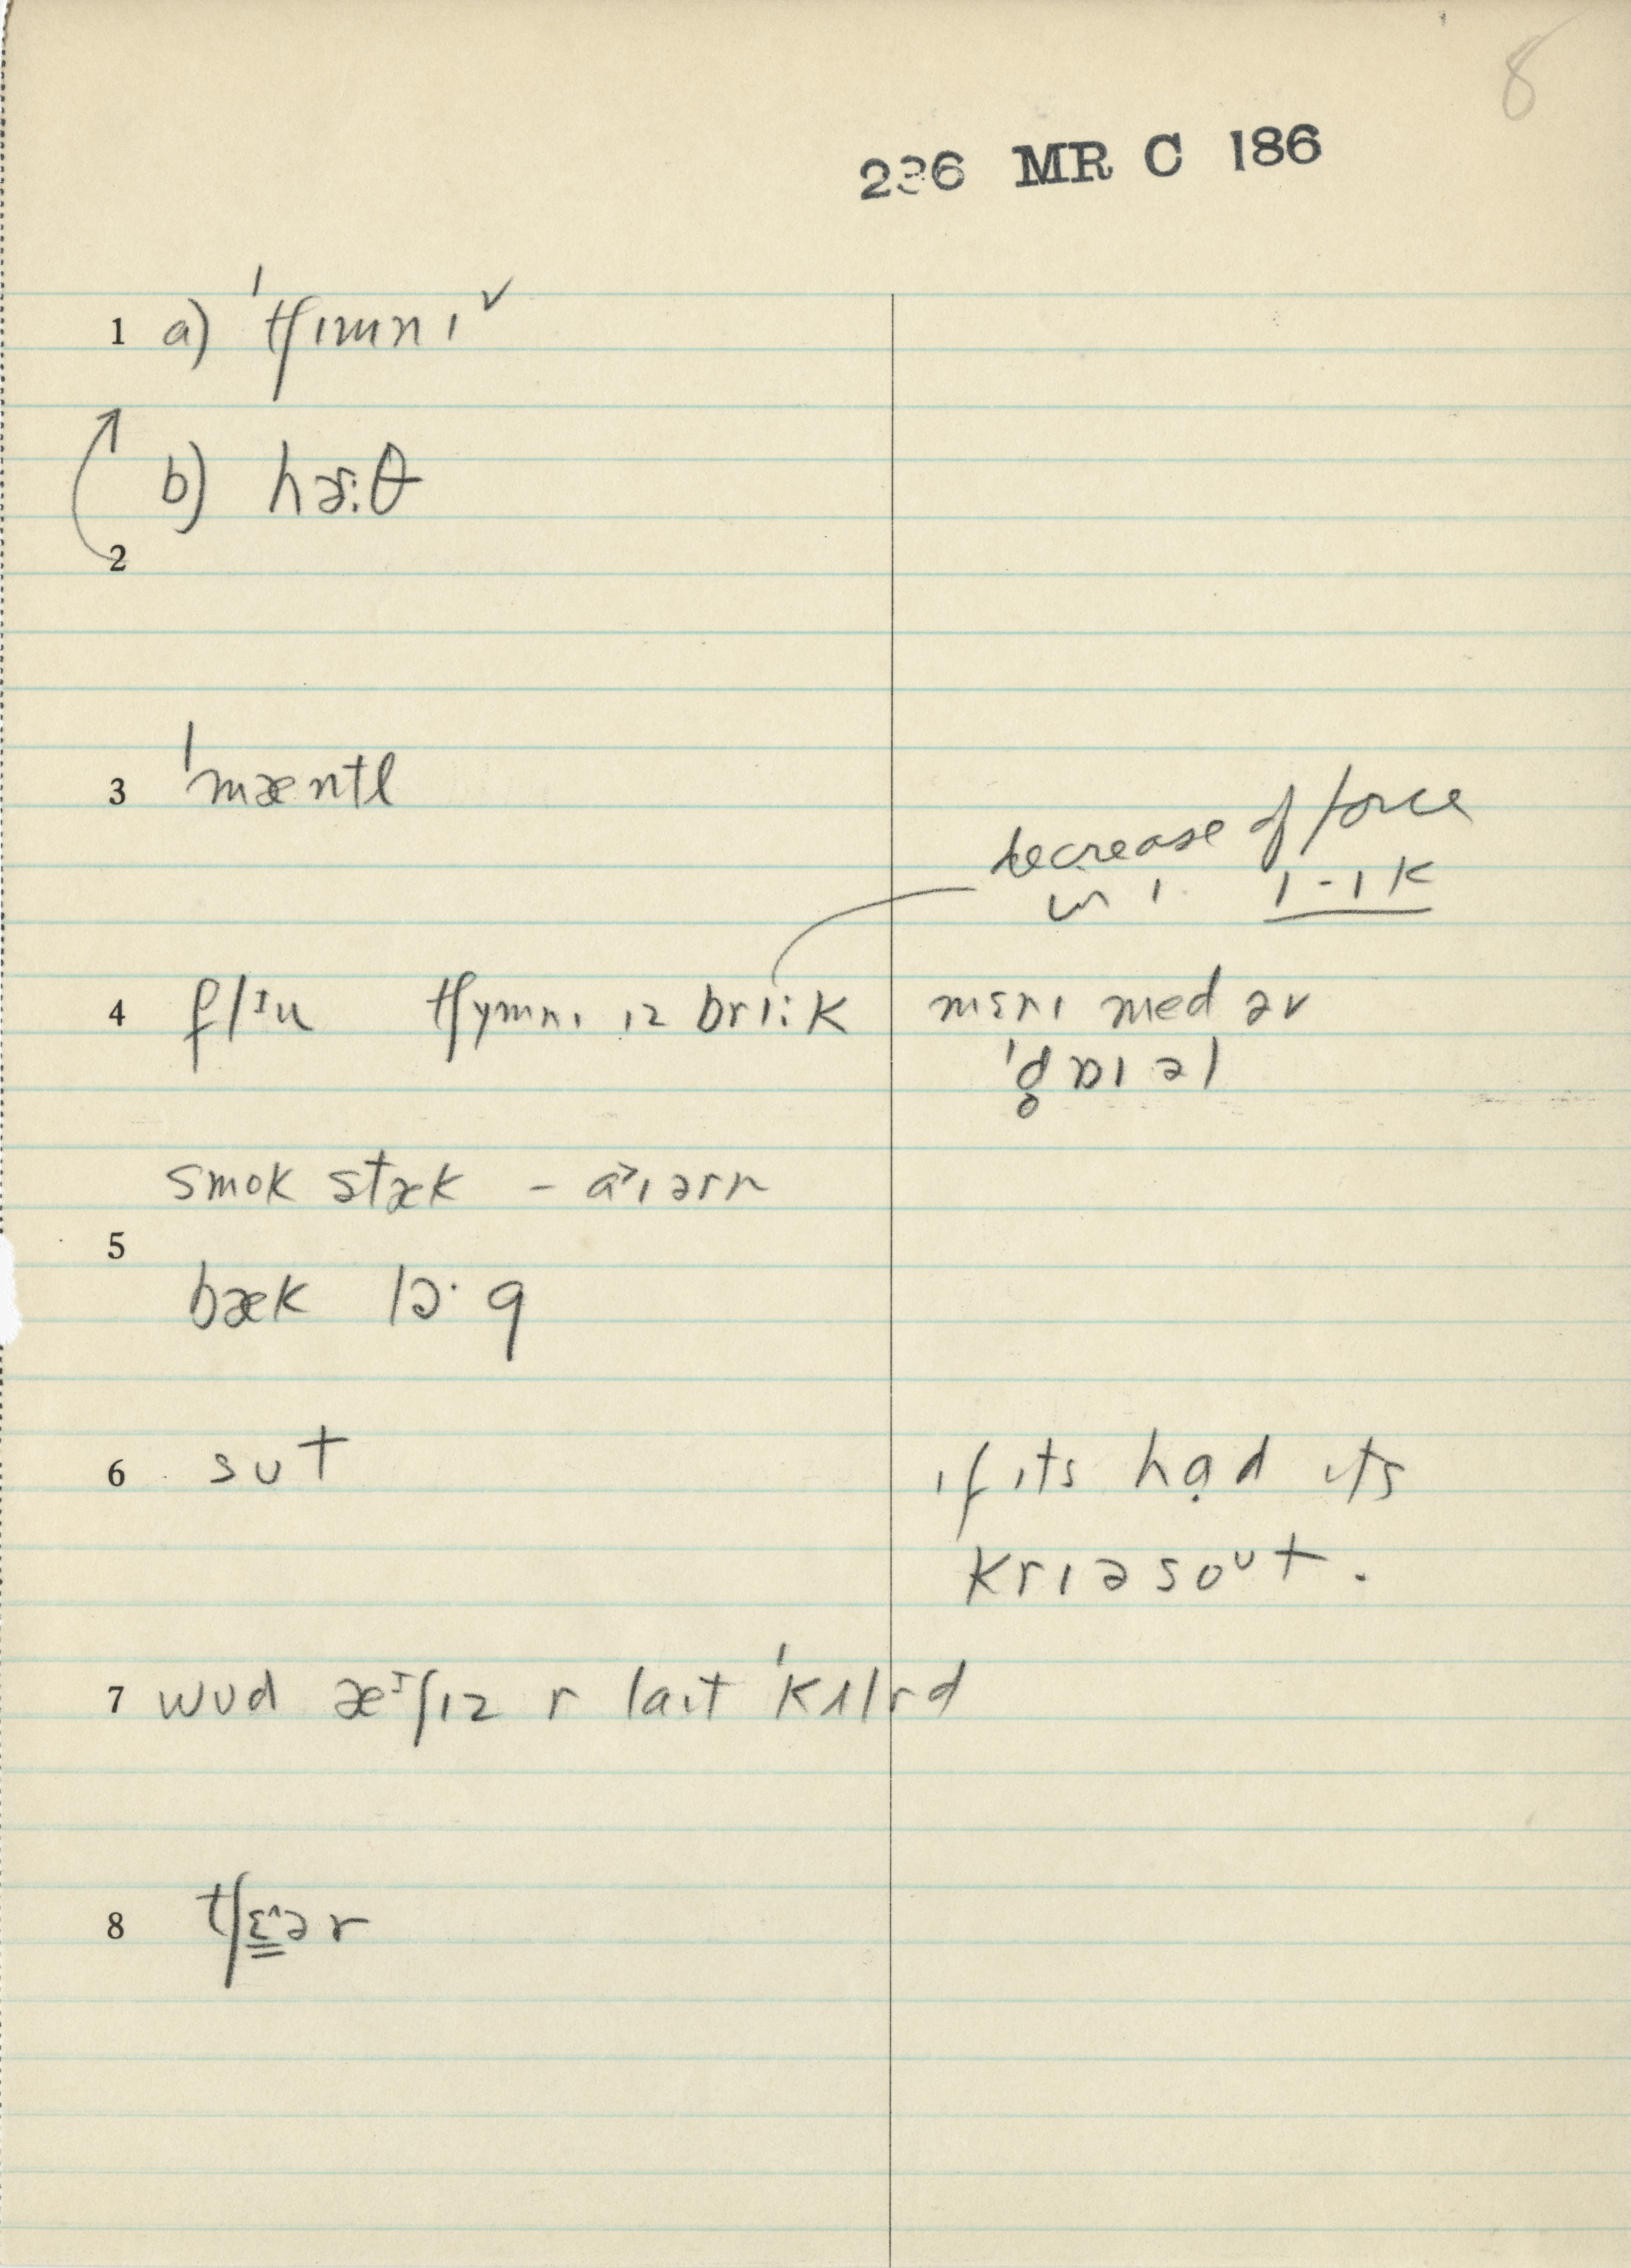 8
236 MR C 186
1 a) ˈtʃɪmnɪ ✓
b) hɚ:θ
2
3 ˈmæntl
decrease of force
in ɪ. ɪ-ɪk
4 flɪu tʃymnɪ ɪz brɪ:k mɛnɪ med əv
smok stæk - a˃ɪərn
5
bæk
6 sut ɪf ɪts had ɪts
krɪəsoʊt.
7 wud æɪʃɪz r laɪt ˈkʌlrd
8 tʃɛ˄ər